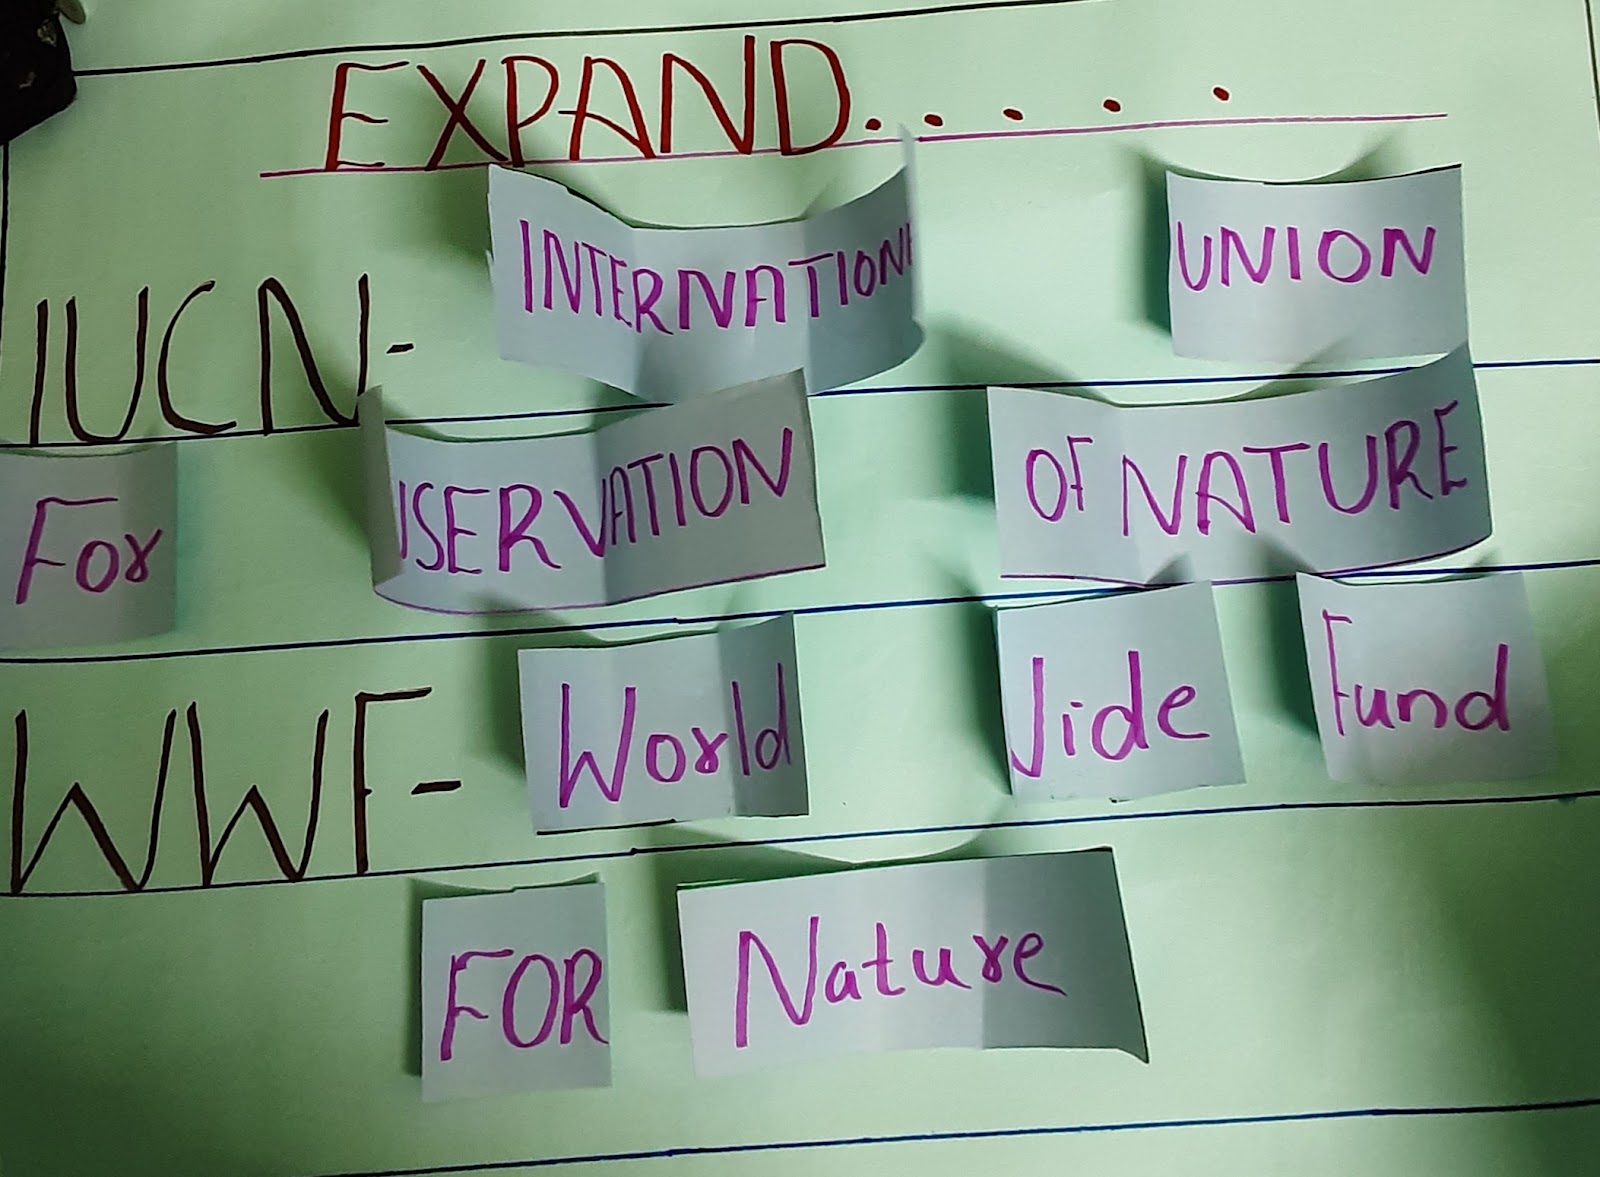 EXPAND.....
IUCN- INTERNATION UNION
For SERVATION OF NATURE
WWF- World Vide Fund
FOR Nature